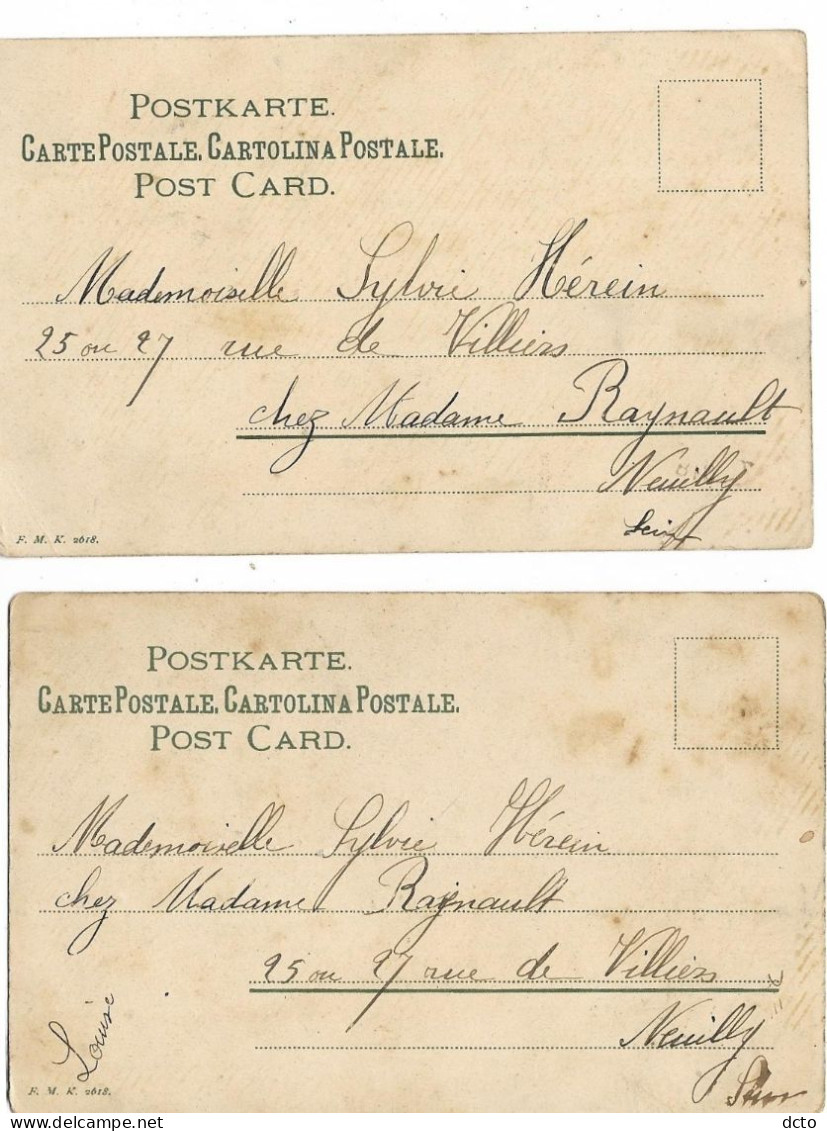 POSTKARTE.
CARTE POSTALE. CARTOLINA POSTALE.
POST CARD.
Mademoiselle Sylvie Hérein
25 ou 27 rue de Villiers
chez Madame Raynault
Neuilly
Seine
F. M. K. 2618.
POSTKARTE.
CARTE POSTALE. CARTOLINA POSTALE.
POST CARD.
Mademoiselle Sylvie Hérein
chez Madame Raynault
25 ou 27 rue de Villiers
Neuilly
Louise
F. M. K. 2618.
dcto